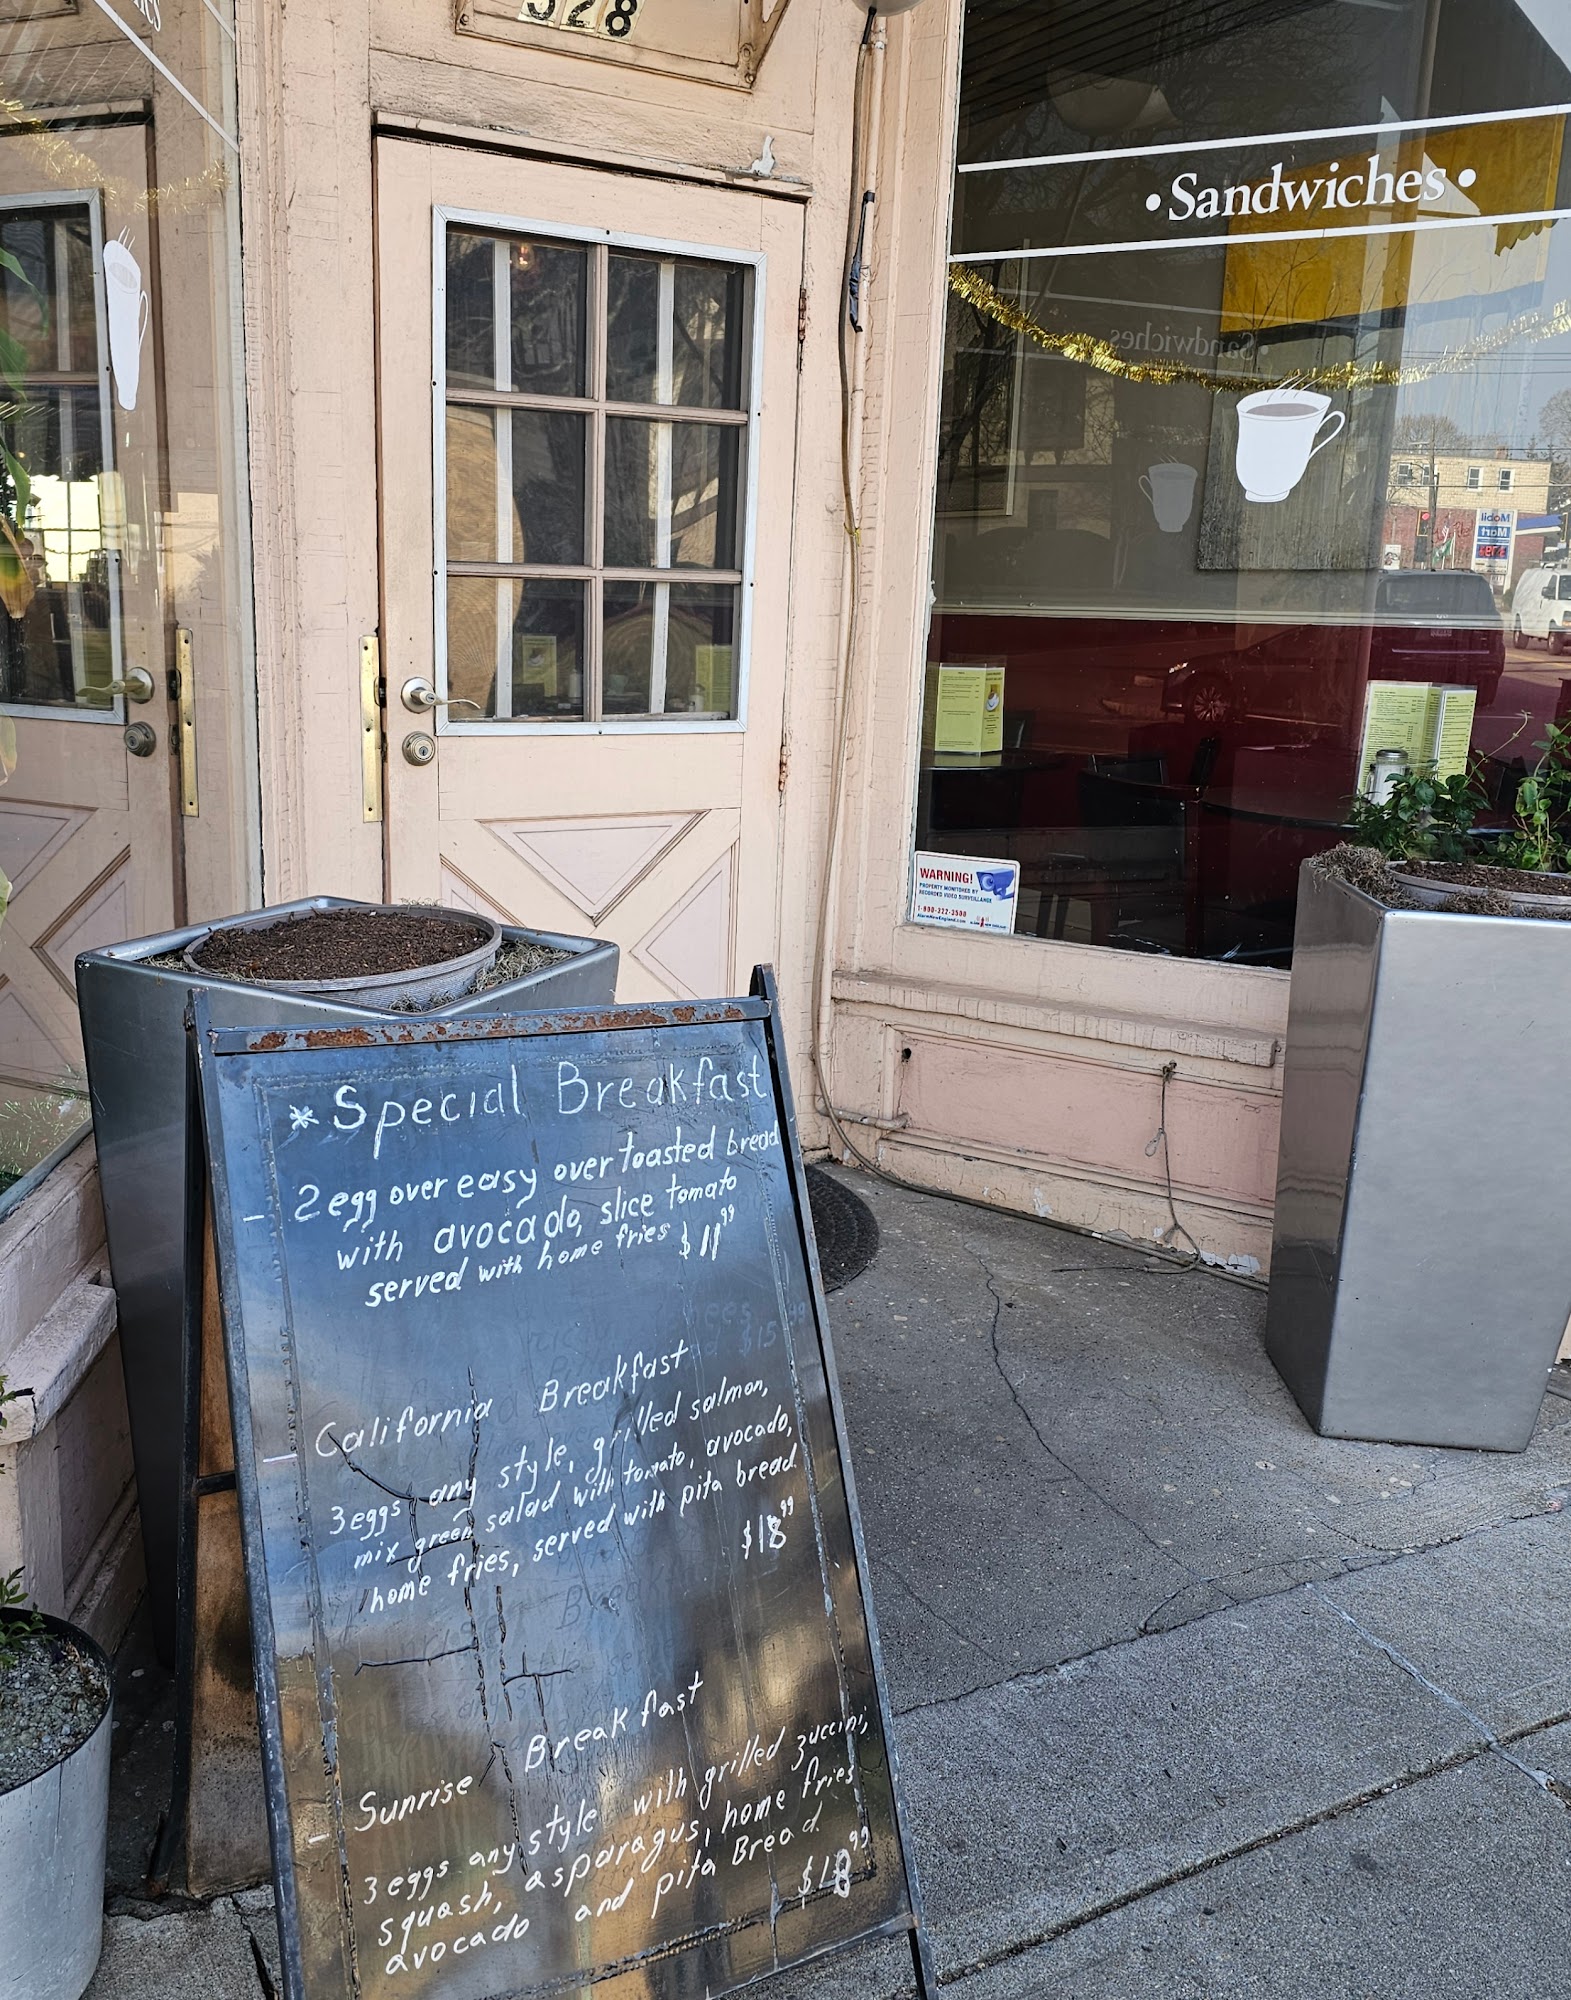 528
• Sandwiches •
Sandwiches
Mobil
Mart
WARNING!
PROPERTY MONITORED BY
RECORDED VIDEO SURVEILLANCE
AlarmNewEngland.com
* Special Breakfast
- 2 egg over easy over toasted bread
with avocado, slice tomato
served with home fries $11.99
- California Breakfast
3 eggs any style, grilled salmon,
mix green salad with tomato, avocado,
home fries, served with pita bread
$18.99
- Sunrise Breakfast
3 eggs any style with grilled zuccini,
squash, asparagus, home fries
avocado and pita Bread
$18.99